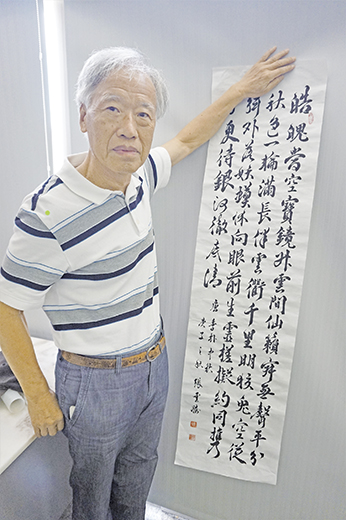 皓魄當空寶鏡升雲間仙籟寂無聲平分
秋色一輪滿長伴雲衢千里明狡兔空從
弦外落妖蟆休向眼前生靈槎擬約同攜
更待銀河徹底清 唐李朴中秋